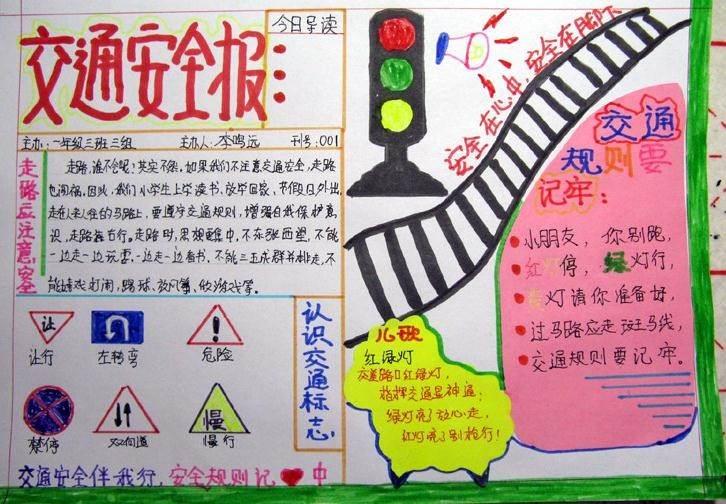 交通安全报
今日导读
主办：一年级三班三组 主办人：李鸣远 刊号：001
走路应注意安全
走路，谁不会呢？其实不然。如果我们不注意交通安全，走路
也闯祸。因此，我们小学生上学读书、放学回家、节假日外出，
走在人来人往的马路上，要遵守交通规则，增强自我保护意
识，走路靠右行。走路时，思想集中，不东张西望，不能
一边走一边玩耍，一边走一边看书，不能三五成群并排走，不
能嬉戏打闹，踢球、放风筝、做游戏等。
认识交通标志
让
让行
左转弯
危险
禁停
双向道
慢
慢行
交通安全伴我行，安全规则记 中
安全在心中，安全在脚下
儿歌
红绿灯
交道路口红绿灯，
指挥交通显神通；
绿灯亮了放心走，
红灯亮了别抢行！
交通
规则要
记牢：
小朋友，你别跑，
红灯停，绿灯行，
黄灯请你准备好，
过马路应走斑马线，
交通规则要记牢。